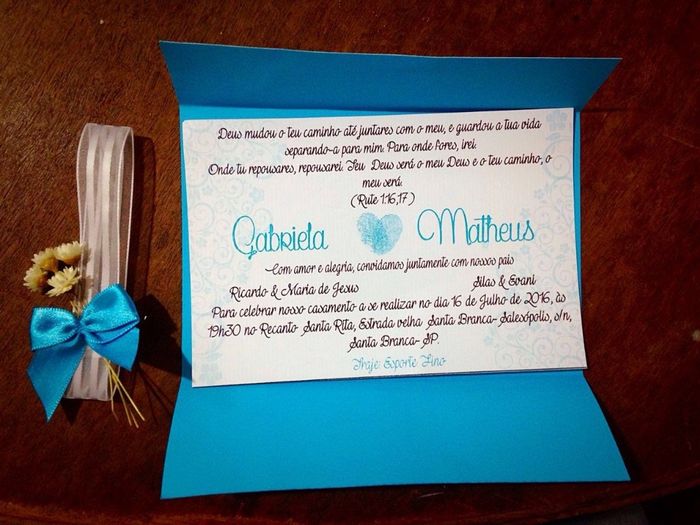 Deus mudou o teu caminho até juntares com o meu, e guardou a tua vida
separando-a para mim. Para onde fores, irei.
Onde tu repousares, repousarei. Teu Deus será o meu Deus e o teu caminho, o
meu será.
(Rute 1:16,17)
Gabriela Matheus
Com amor e alegria, convidamos juntamente com nossos pais
Ricardo & Maria de Jesus Silas & Evani
Para celebrar nosso casamento a se realizar no dia 16 de Julho de 2016, às
19h30 no Recanto Santa Rita, Estrada velha Santa Branca- Salesópolis, s/n,
Santa Branca- SP.
Traje: Esporte Fino